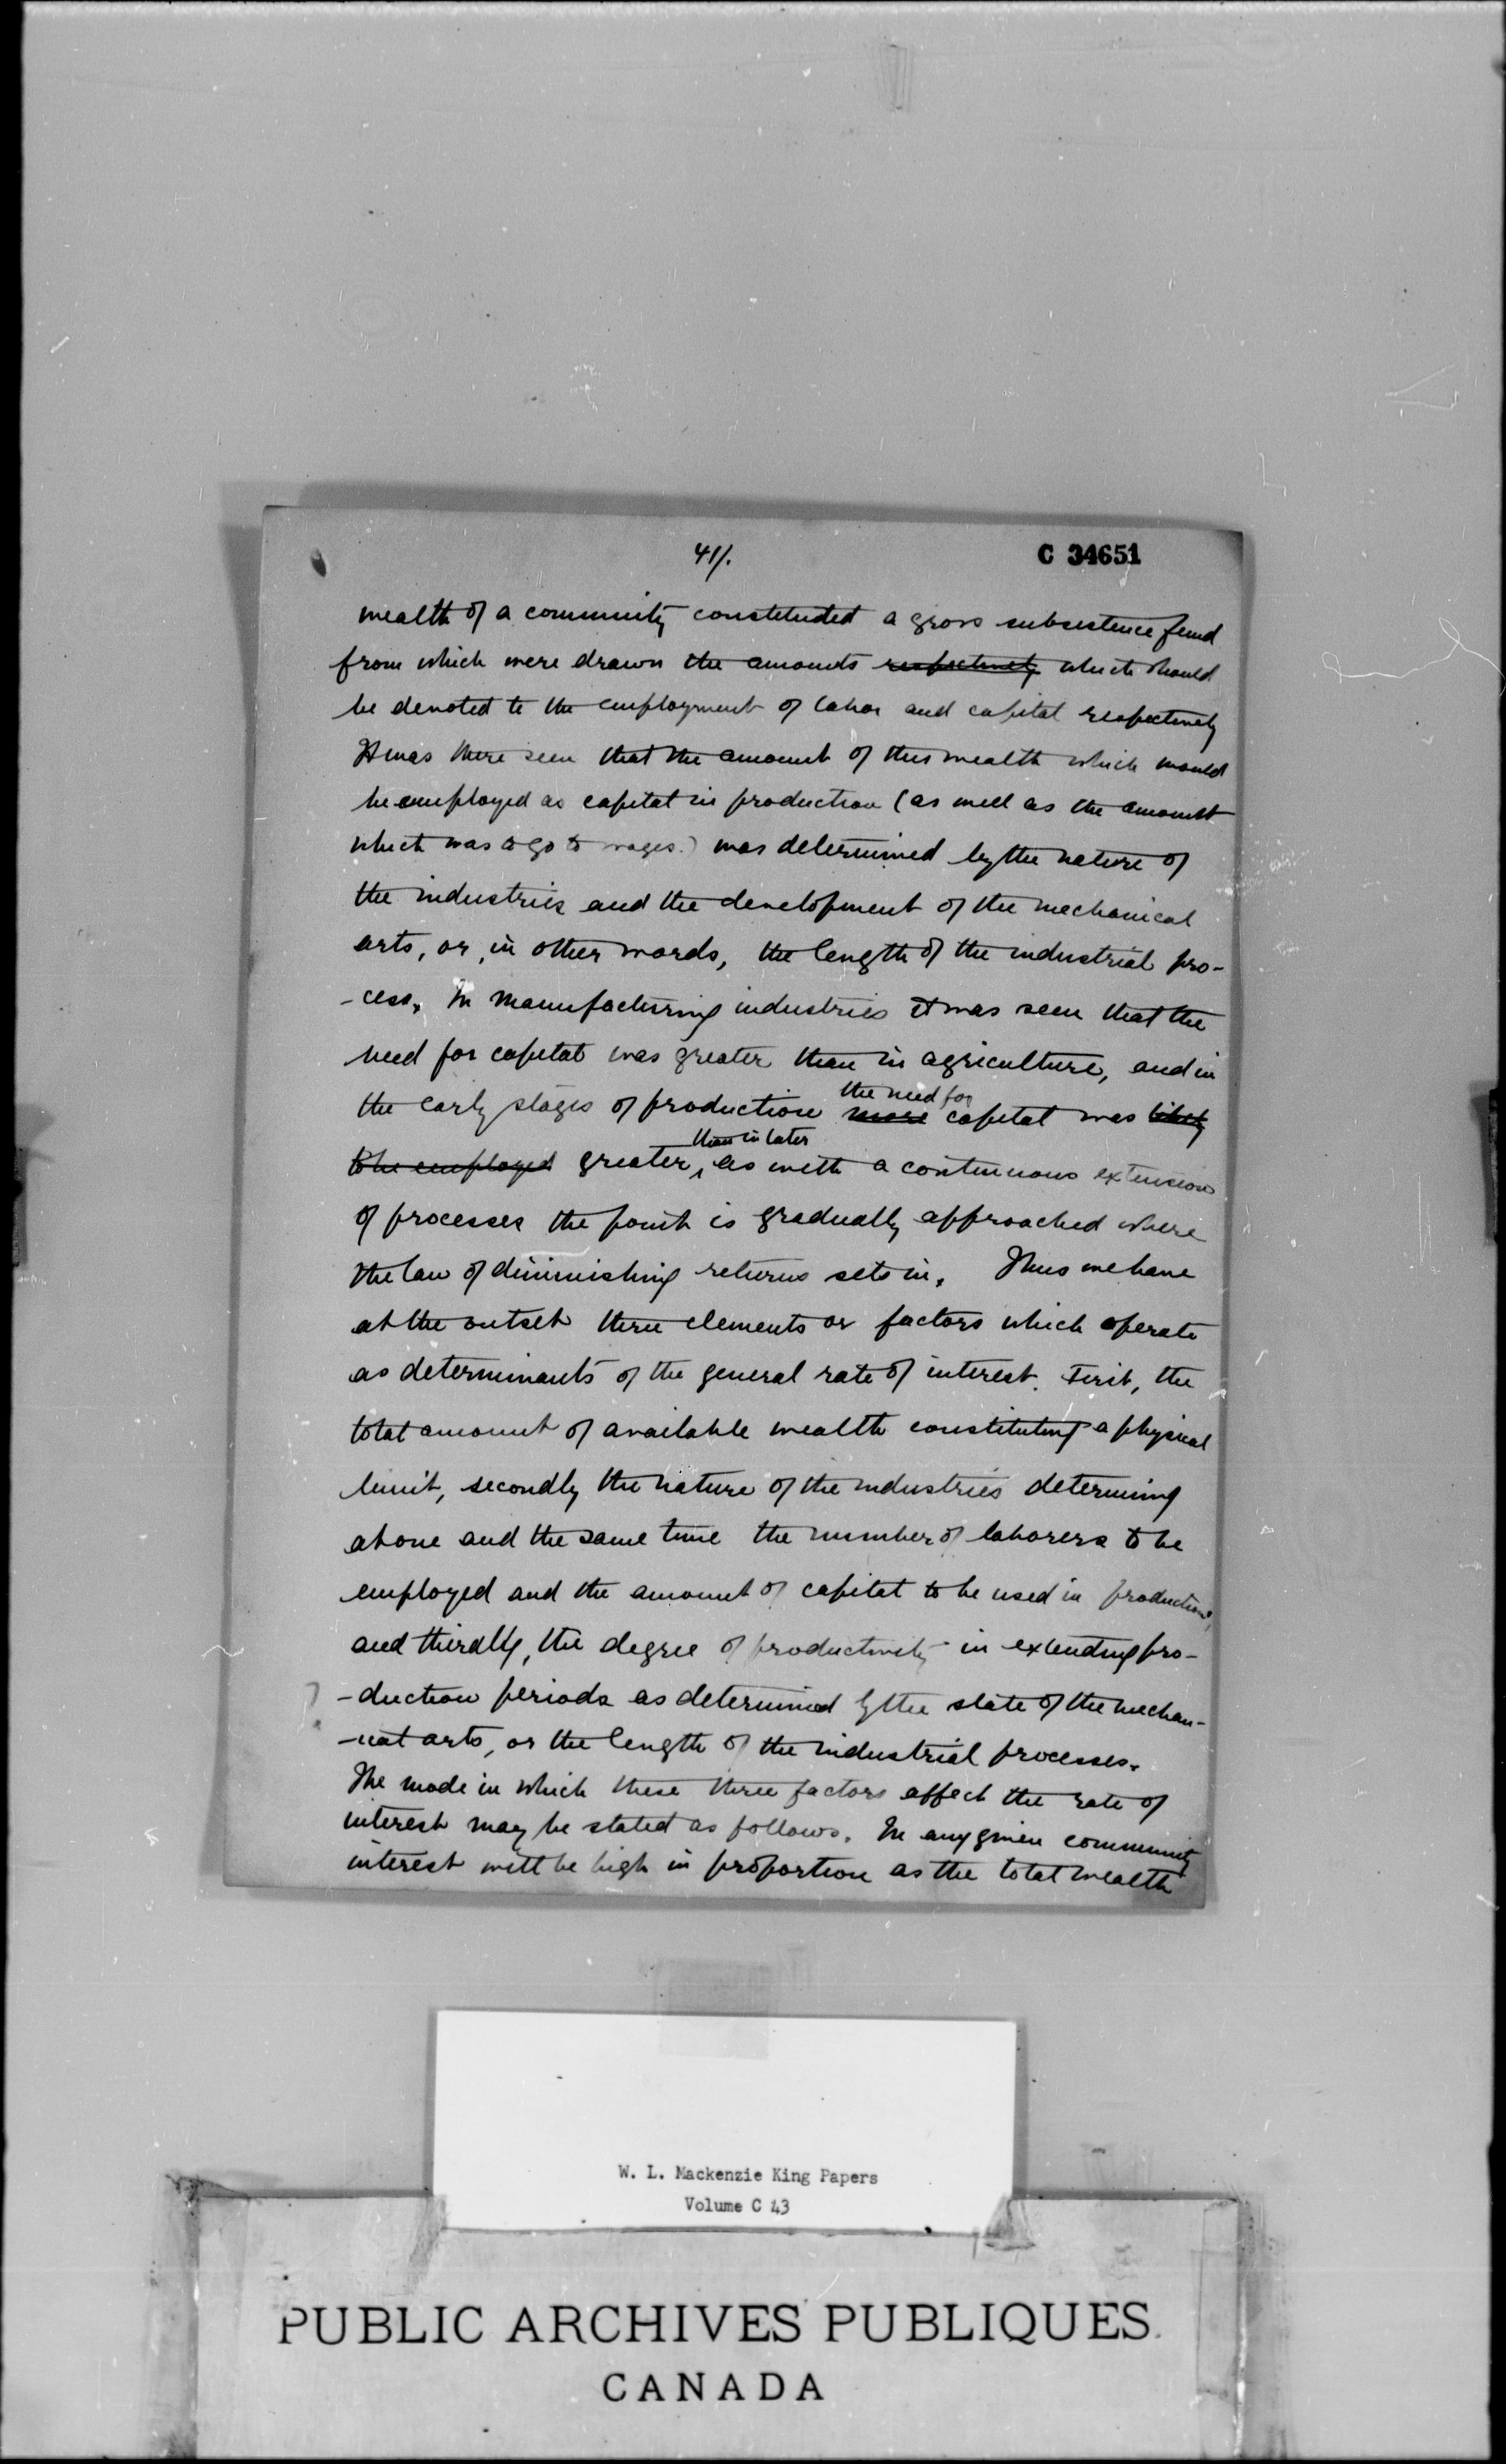 41/.
C 34651
wealth of a community constituted a gross subsistence fund
from which were drawn the amounts respectively which should
be devoted to the employment of labor and capital respectively
It was there seen that the amount of this wealth which would
be employed as capital in production (as well as the amount
which was to go to wages.) was determined by the nature of
the industries and the development of the mechanical
arts, or, in other words, the length of the industrial pro-
-cess. In manufacturing industries it was seen that the
need for capital was greater than in agriculture, and in
the early stages of production more the need for capital was likely
to be employed greater, than in later as with a continuous extension
of processes the point is gradually approached where
the law of diminishing returns sets in. Thus we have
at the outset three elements or factors which operate
as determinants of the general rate of interest. First, the
total amount of available wealth constituting a physical
limit, secondly the nature of the industries determining
at one and the same time the number of laborers to be
employed and the amount of capital to be used in production,
and thirdly, the degree of productivity in extending pro-
-duction periods as determined by the state of the mechan-
-ical arts, or the length of the industrial processes.
The mode in which these three factors affect the rate of
interest may be stated as follows. In any given community
interest will be high in proportion as the total wealth
W. L. Mackenzie King Papers
Volume C 43
PUBLIC ARCHIVES PUBLIQUES
CANADA